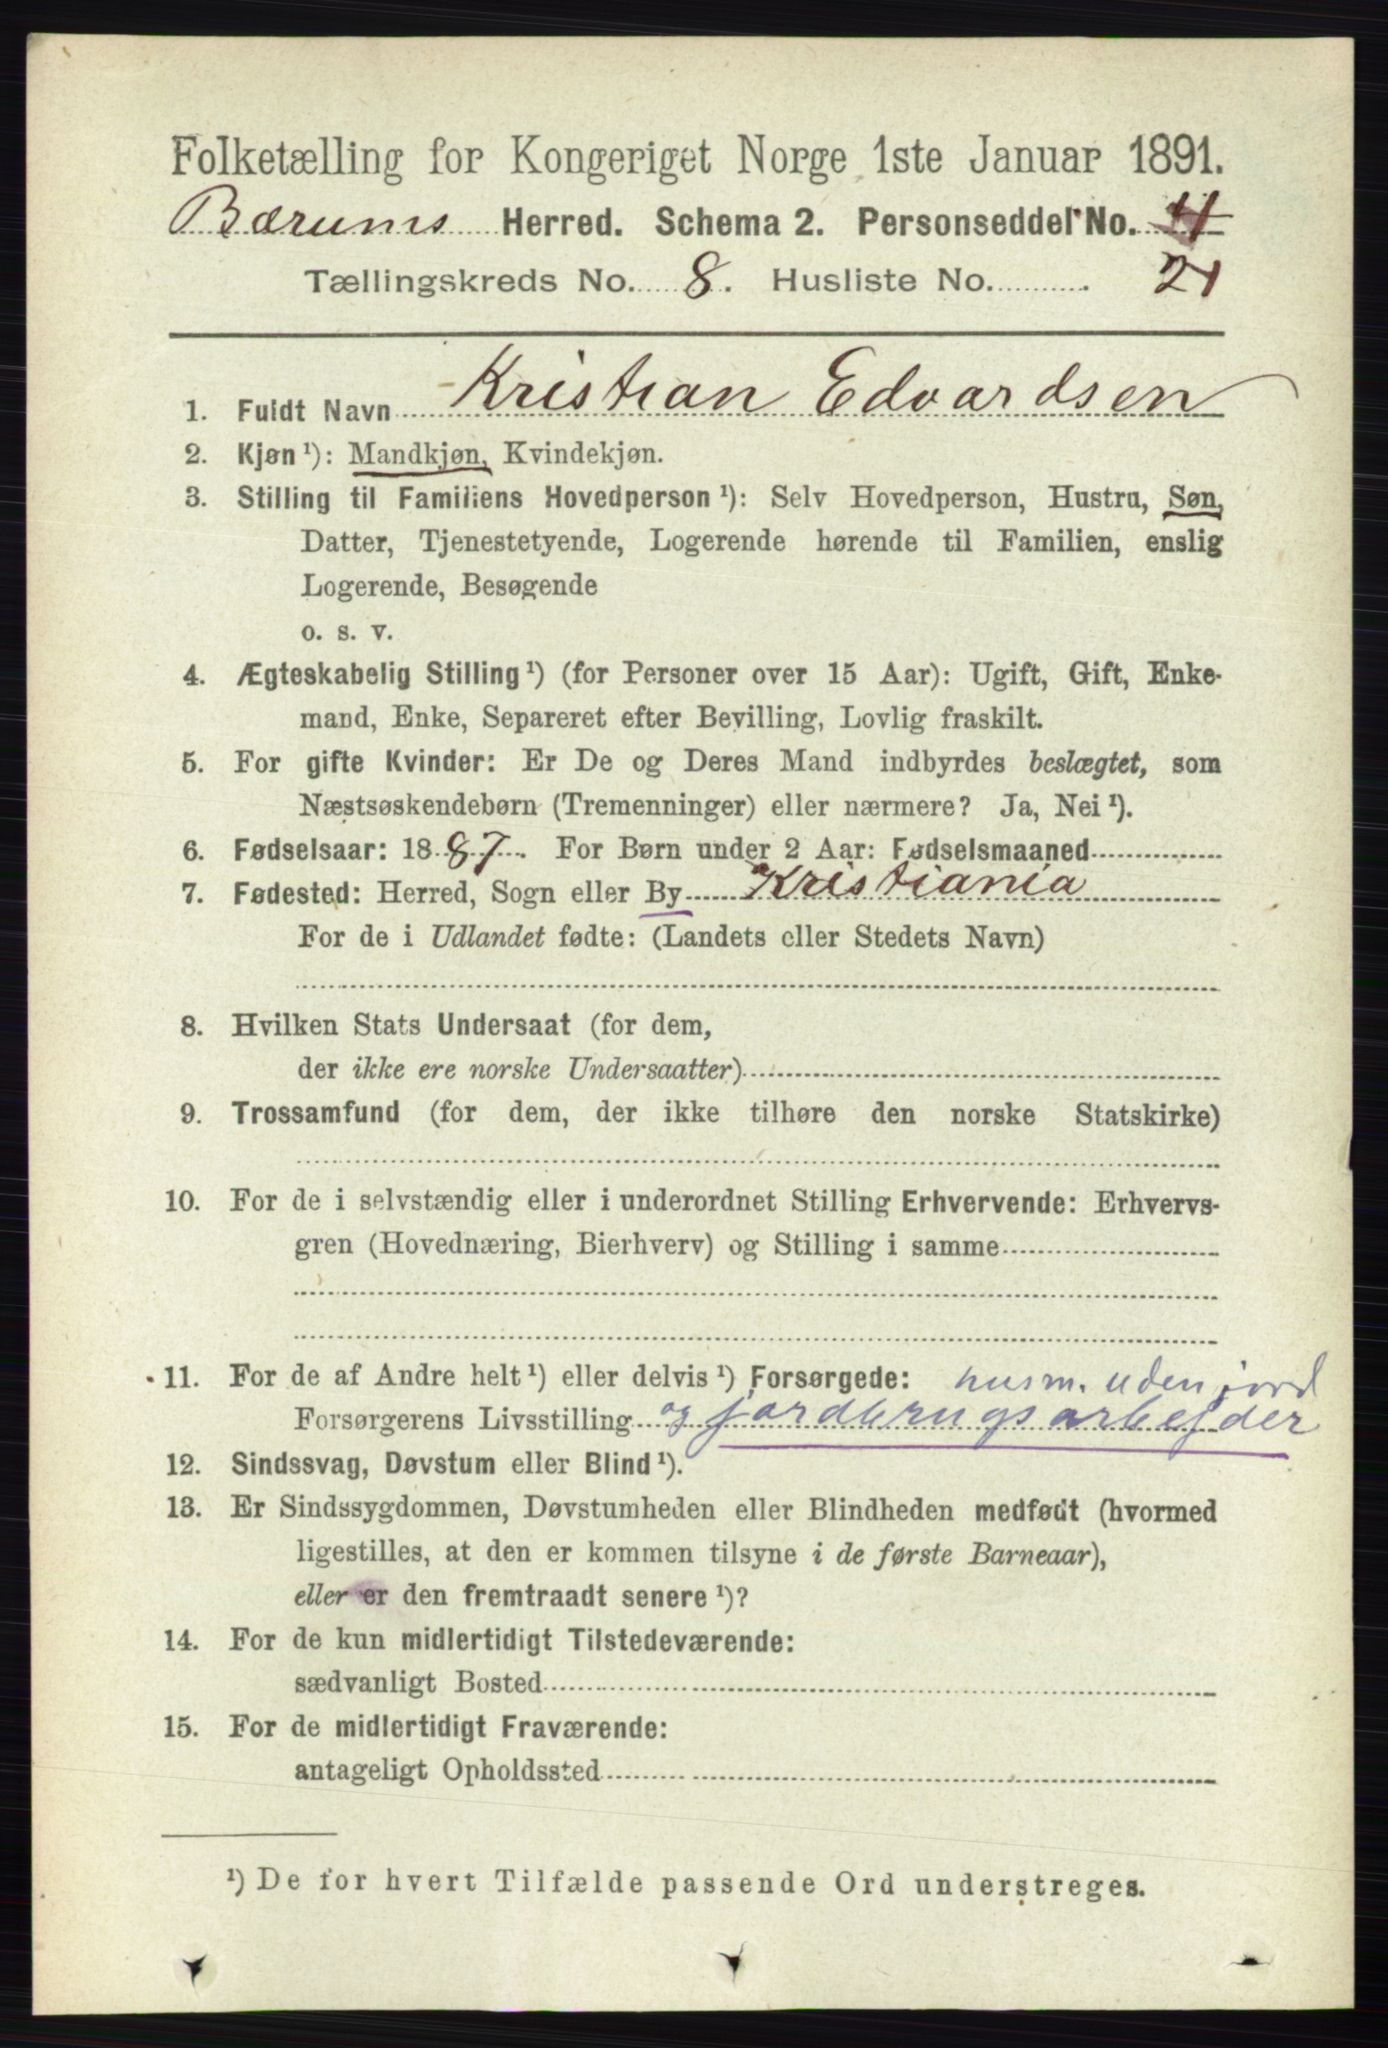 Folketælling for Kongeriget Norge 1ste Januar 1891.
Bærums Herred. Schema 2. Personseddel No.
Tællingskreds No. 8. Husliste No. 21
1. Fuldt Navn Kristian Edvardsen
2. Kjøn ¹): Mandkjøn, Kvindekjøn.
3. Stilling til Familiens Hovedperson ¹): Selv Hovedperson, Hustru, Søn,
Datter, Tjenestetyende, Logerende hørende til Familien, enslig
Logerende, Besøgende
o. s. v.
4. Ægteskabelig Stilling ¹) (for Personer over 15 Aar): Ugift, Gift, Enke-
mand, Enke, Separeret efter Bevilling, Lovlig fraskilt.
5. For gifte Kvinder: Er De og Deres Mand indbyrdes beslægtet, som
Næstsøskendebørn (Tremenninger) eller nærmere? Ja, Nei ¹).
6. Fødselsaar: 1887. For Børn under 2 Aar: Fødselsmaaned
7. Fødested: Herred, Sogn eller By Kristiania
For de i Udlandet fødte: (Landets eller Stedets Navn)
8. Hvilken Stats Undersaat (for dem,
der ikke ere norske Undersaatter)
9. Trossamfund (for dem, der ikke tilhøre den norske Statskirke)
10. For de i selvstændig eller i underordnet Stilling Erhvervende: Erhvervs-
gren (Hovednæring, Bierhverv) og Stilling i samme
11. For de af Andre helt ¹) eller delvis ¹) Forsørgede: husm. uden jord
Forsørgerens Livsstilling og jordbrugsarbejder
12. Sindssvag, Døvstum eller Blind ¹).
13. Er Sindssygdommen, Døvstumheden eller Blindheden medfødt (hvormed
ligestilles, at den er kommen tilsyne i de første Barneaar),
eller er den fremtraadt senere ¹)?
14. For de kun midlertidigt Tilstedeværende:
sædvanligt Bosted
15. For de midlertidigt Fraværende:
antageligt Opholdssted
¹) De for hvert Tilfælde passende Ord understreges.